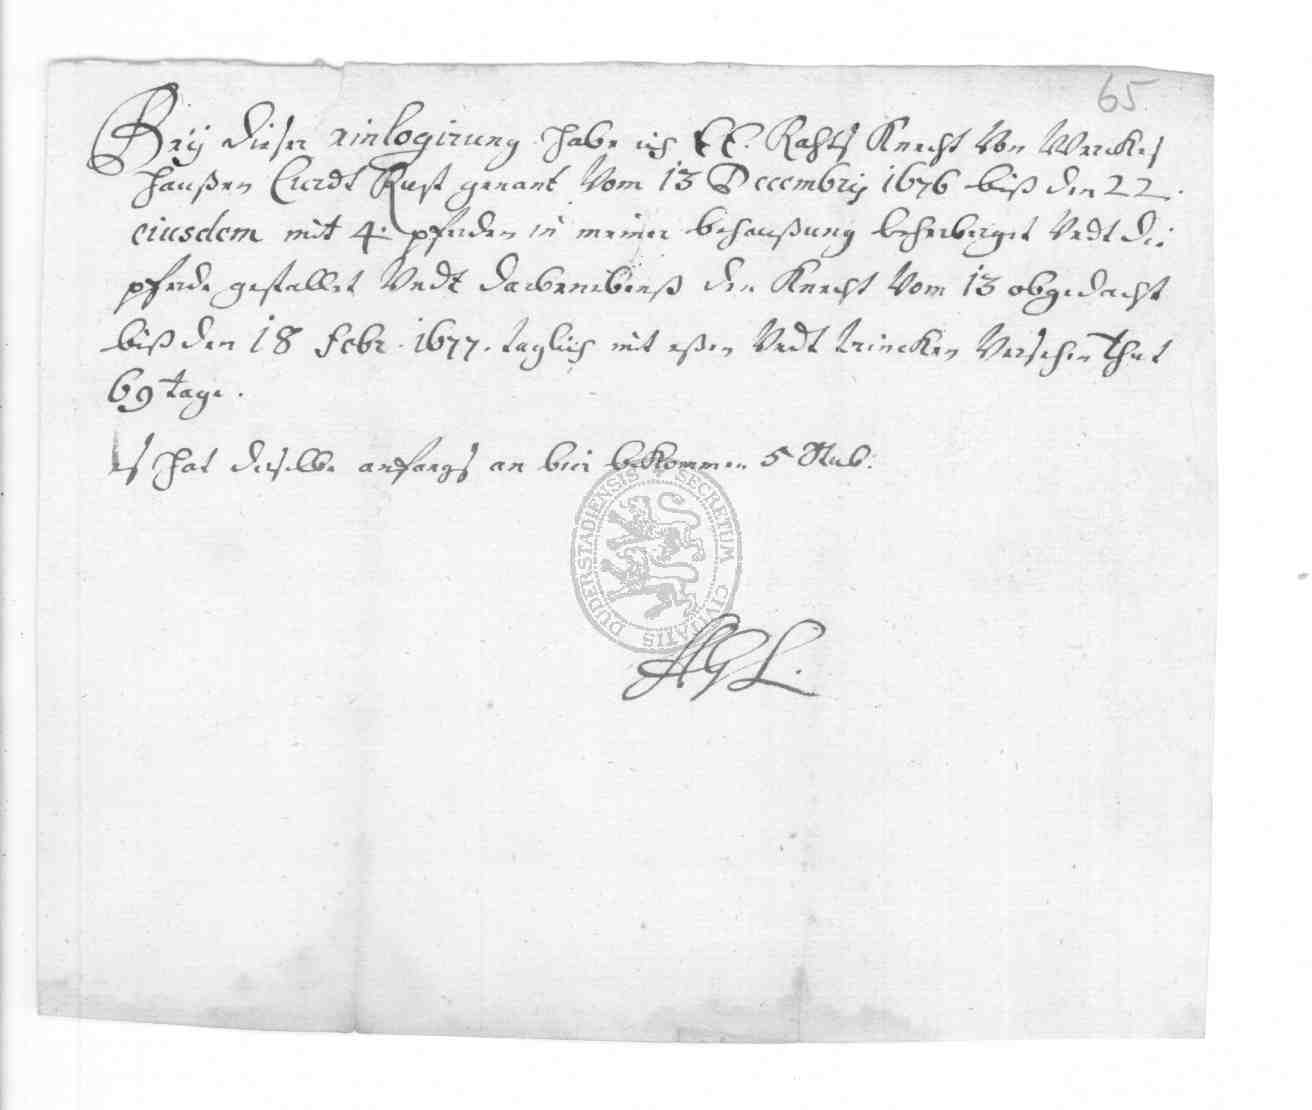 65
Beÿ dieser einlogirung habe ich EE. Rahts Knecht Von Werckes
haußen Curdt Rust genant Vom 13 Decembrÿ 1676 biß den 22.
eiusdem mit 4. pferden in meiner behaußung beherberget Undt die
pferde gestallet Undt darbenebenß den Knecht Vom 13 obgedacht
biß den 18 Febr. 1677. taglich mit eßen Undt trincken Versehen thut
69 tage.
Es hat derselbe anfangs an bier bekommen 5 Stub.
SECRETUM CIVITATIS DUDERSTADIENSIS
HGL.